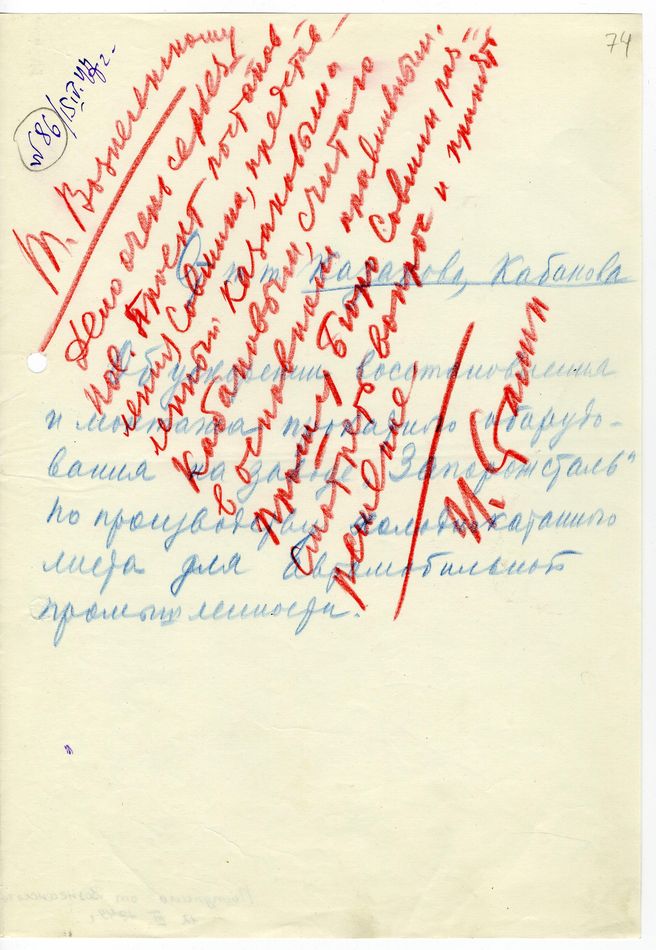 74
№ 86/
15.IV.47 г.
Т. Вознесенскому
Дело очень серьез-
ное. Проект постанов-
ления Совмина, представ-
ленный Казаковым и
Кабановым, считаю
в основном правильным.
Прошу Бюро Совмина рас-
смотреть вопрос и принять
решение
И. Сталин
От т.т. Казакова, Кабанова
Об ускорении восстановления
и монтажа прокатного оборудо-
вания на заводе „Запорожсталь“
по производству холоднокатанного
листа для автомобильной
промышленности.
Поступило от